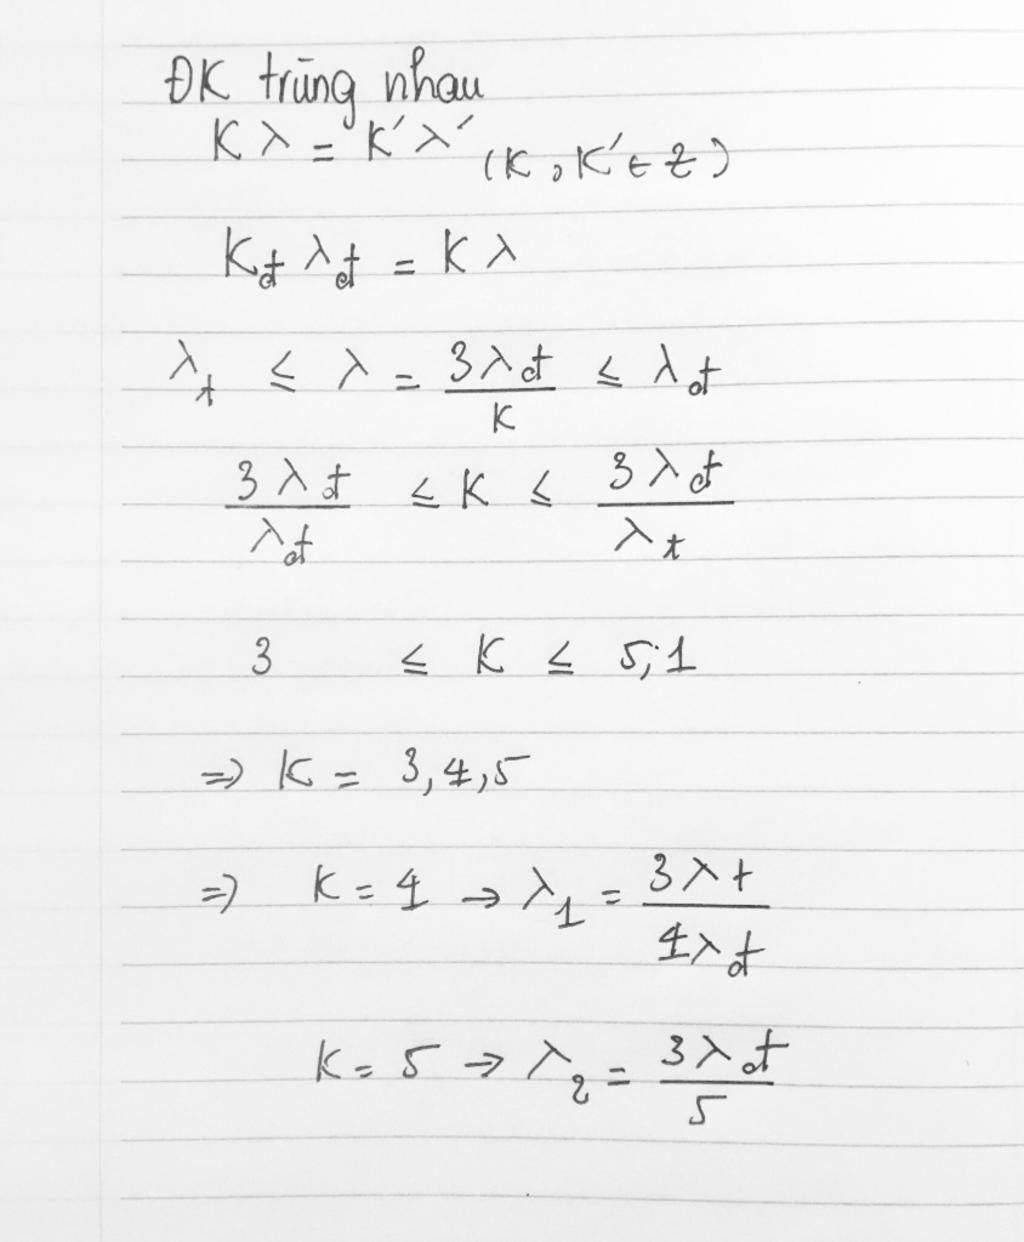 ĐK trùng nhau
Kλ = K'λ' (K, K' ∈ Z)
K_đ λ_đ = Kλ
λ_t ≤ λ = 3λ_đ / K ≤ λ_đ
3λ_đ / λ_đ ≤ K ≤ 3λ_đ / λ_t
3 ≤ K ≤ 5,1
=> K = 3,4,5
=> K = 4 → λ_1 = 3λt / 4λ_đ
K = 5 → λ_2 = 3λ_đ / 5